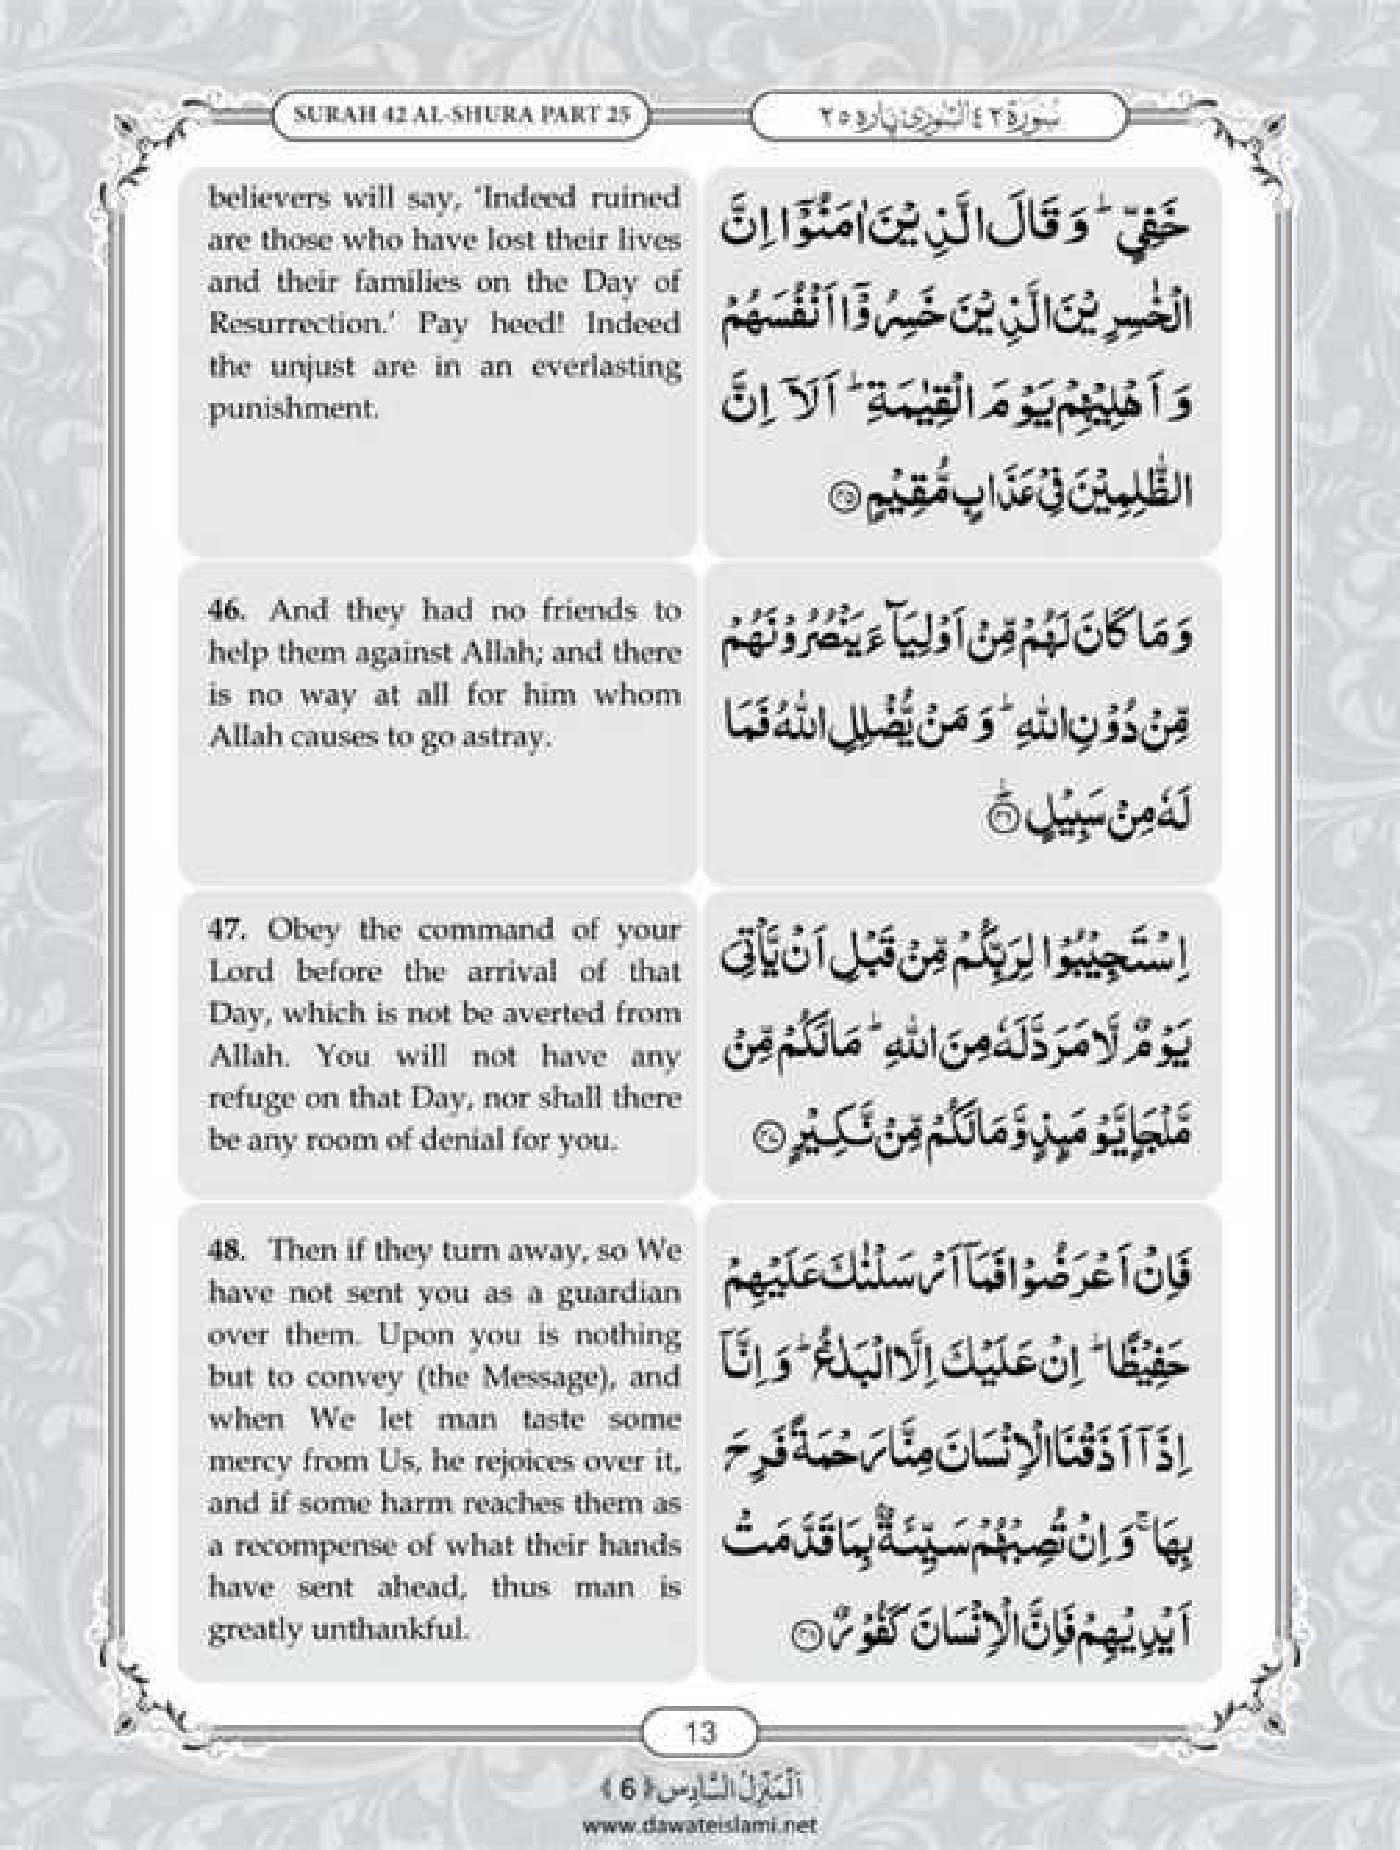 SURAH 42 AL-SHURA PART 25
سُوْرَةُ ٤٢ الشُّوْرٰى پارہ ٢٥
believers will say, ‘Indeed ruined
are those who have lost their lives
and their families on the Day of
Resurrection.’ Pay heed! Indeed
the unjust are in an everlasting
punishment.
خَفِيٍّ ؕ وَ قَالَ الَّذِيْنَ اٰمَنُوْۤا اِنَّ
الْخٰسِرِيْنَ الَّذِيْنَ خَسِرُوْۤا اَنْفُسَهُمْ
وَ اَهْلِيْهِمْ يَوْمَ الْقِيٰمَةِ ؕ اَلَاۤ اِنَّ
الظّٰلِمِيْنَ فِيْ عَذَابٍ مُّقِيْمٍ ﴿۴۵﴾
46. And they had no friends to
help them against Allah; and there
is no way at all for him whom
Allah causes to go astray.
وَ مَا كَانَ لَهُمْ مِّنْ اَوْلِيَآءَ يَنْصُرُوْنَهُمْ
مِّنْ دُوْنِ اللّٰهِ ؕ وَ مَنْ يُّضْلِلِ اللّٰهُ فَمَا
لَهٗ مِنْ سَبِيْلٍ ﴿ؕ۴۶﴾
47. Obey the command of your
Lord before the arrival of that
Day, which is not be averted from
Allah. You will not have any
refuge on that Day, nor shall there
be any room of denial for you.
اِسْتَجِيْبُوْا لِرَبِّكُمْ مِّنْ قَبْلِ اَنْ يَّاْتِيَ
يَوْمٌ لَّا مَرَدَّ لَهٗ مِنَ اللّٰهِ ؕ مَا لَكُمْ مِّنْ
مَّلْجَاٍ يَّوْمَىِٕذٍ وَّ مَا لَكُمْ مِّنْ نَّكِيْرٍ ﴿۴۷﴾
48. Then if they turn away, so We
have not sent you as a guardian
over them. Upon you is nothing
but to convey (the Message), and
when We let man taste some
mercy from Us, he rejoices over it,
and if some harm reaches them as
a recompense of what their hands
have sent ahead, thus man is
greatly unthankful.
فَاِنْ اَعْرَضُوْا فَمَاۤ اَرْسَلْنٰكَ عَلَيْهِمْ
حَفِيْظًا ؕ اِنْ عَلَيْكَ اِلَّا الْبَلٰغُ ؕ وَ اِنَّاۤ
اِذَاۤ اَذَقْنَا الْاِنْسَانَ مِنَّا رَحْمَةً فَرِحَ
بِهَا ۚ وَ اِنْ تُصِبْهُمْ سَيِّئَةٌۢ بِمَا قَدَّمَتْ
اَيْدِيْهِمْ فَاِنَّ الْاِنْسَانَ كَفُوْرٌ ﴿۴۸﴾
13
اَلْمَنْزِلُ السَّادِس ﴿6﴾
www.dawateislami.net